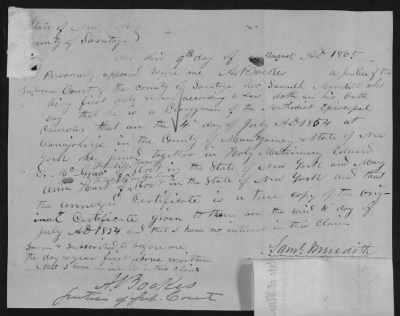 State of New York
County of Saratoga
On this 9th day of August AD 1865
Personally appeared before me A Bockes a Justice of the
Supreme Court of the county of Saratoga Rev Samuel Meredith who
being first duly sworn according to law doth on his oath
say that he is a Clergyman of the Methodist Episcopal
Church, that on the 4th day of July AD 1854 at
Canajoharie in the County of Montgomery & State of New
York he joined together in Holy Matrimony Edward
in the State of New York and Mary
Ann in the State of New York and that
the annexed Certificate is a true copy of the orig-
inal Certificate given to them on the said 4th day of
July AD 1854 and that I have no interest in this Claim
Sworn & Subscribed to before me
the day & year first above written
& that I have no interest in this claim
Saml Meredith
A Bockes
Justice of Sup. Court